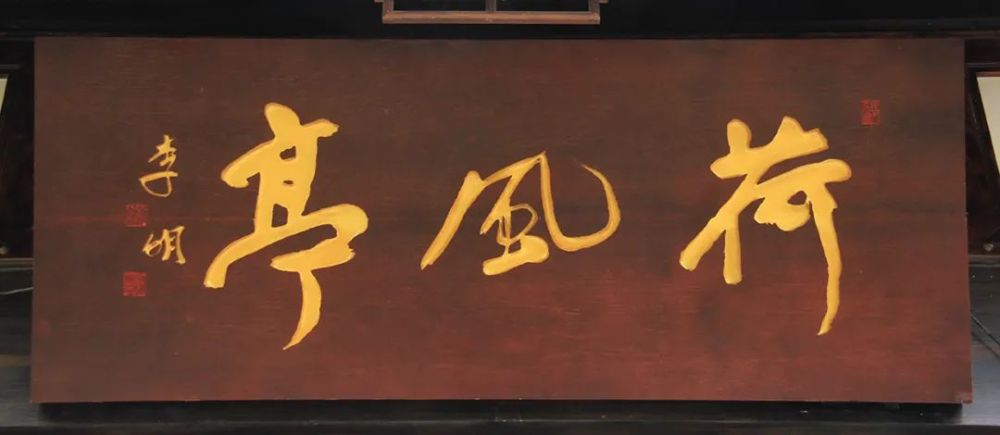 荷風亭
李明